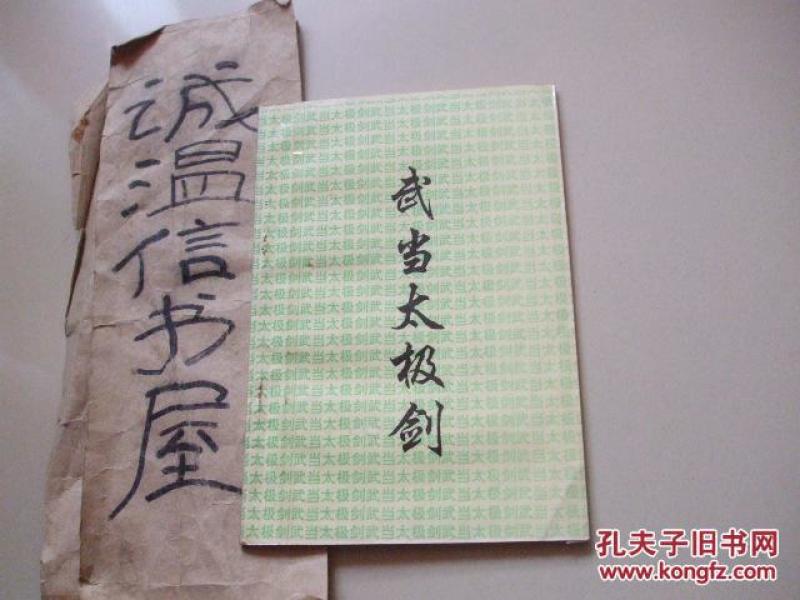 诚温信书屋
武当太极剑
孔夫子旧书网
www.kongfz.com